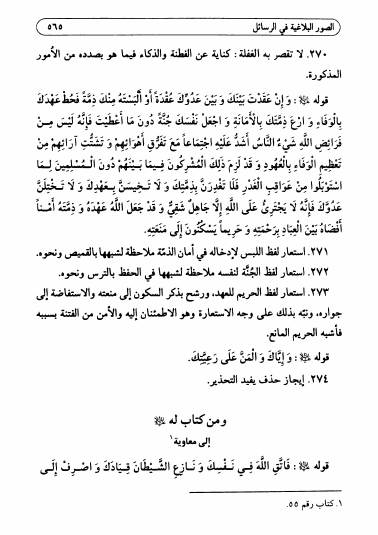 الصور البلاغية في الرسائل
٥٦٥
٢٧٠. لا تقصر به الغفلة: كناية عن الفطنة والذكاء فيما هو بصدده من الأمور
المذكورة.
قوله ﷺ: وَ إِنْ عَقَدْتَ بَيْنَكَ وَ بَيْنَ عَدُوِّكَ عُقْدَةً أَوْ أَلْبَسْتَهُ مِنْكَ ذِمَّةً فَحُطْ عَهْدَكَ
بِالْوَفَاءِ وَ ارْعَ ذِمَّتَكَ بِالْأَمَانَةِ وَ اجْعَلْ نَفْسَكَ جُنَّةً دُونَ مَا أَعْطَيْتَ فَإِنَّهُ لَيْسَ مِنْ
فَرَائِضِ اللَّهِ شَيْءٌ النَّاسُ أَشَدُّ عَلَيْهِ اجْتِمَاعاً مَعَ تَفَرُّقِ أَهْوَائِهِمْ وَ تَشَتُّتِ آرَائِهِمْ مِنْ
تَعْظِيمِ الْوَفَاءِ بِالْعُهُودِ وَ قَدْ لَزِمَ ذَلِكَ الْمُشْرِكُونَ فِيمَا بَيْنَهُمْ دُونَ الْمُسْلِمِينَ لِمَا
اسْتَوْبَلُوا مِنْ عَوَاقِبِ الْغَدْرِ فَلَا تَغْدِرَنَّ بِذِمَّتِكَ وَ لَا تَخِيسَنَّ بِعَهْدِكَ وَ لَا تَخْتِلَنَّ
عَدُوَّكَ فَإِنَّهُ لَا يَجْتَرِئُ عَلَى اللَّهِ إِلَّا جَاهِلٌ شَقِيٌّ وَ قَدْ جَعَلَ اللَّهُ عَهْدَهُ وَ ذِمَّتَهُ أَمْناً
أَفْضَاهُ بَيْنَ الْعِبَادِ بِرَحْمَتِهِ وَ حَرِيماً يَسْكُنُونَ إِلَى مَنَعَتِهِ.
٢٧١. استعار لفظ اللبس لإدخاله في أمان الذمّة ملاحظة لشبهها بالقميص ونحوه.
٢٧٢. استعار لفظ الجُنَّة لنفسه ملاحظة لشبهها في الحفظ بالترس ونحوه.
٢٧٣. استعار لفظ الحريم للعهد، ورشح بذكر السكون إلى منعته والاستفاضة إلى
جواره، ونبّه بذلك على وجه الاستعارة وهو الاطمئنان إليه والأمن من الفتنة بسببه
فأشبه الحريم المانع.
قوله ﷺ: وَ إِيَّاكَ وَ الْمَنَّ عَلَى رَعِيَّتِكَ.
٢٧٤. إيجاز حذف يفيد التحذير.
ومن كتاب له ﷺ
إلى معاوية١
قوله ﷺ: فَاتَّقِ اللَّهَ فِي نَفْسِكَ وَ نَازِعِ الشَّيْطَانَ قِيَادَكَ وَ اصْرِفْ إِلَى
١. كتاب رقم ٥٥.